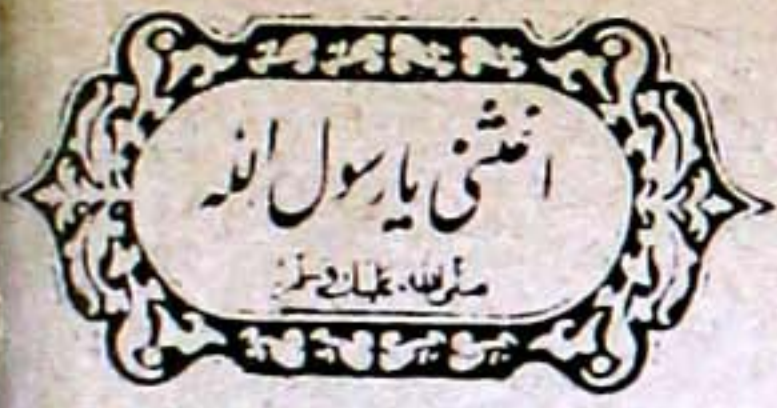 اغثنی یا رسول اللہ
صلی اللہ علیک وسلم